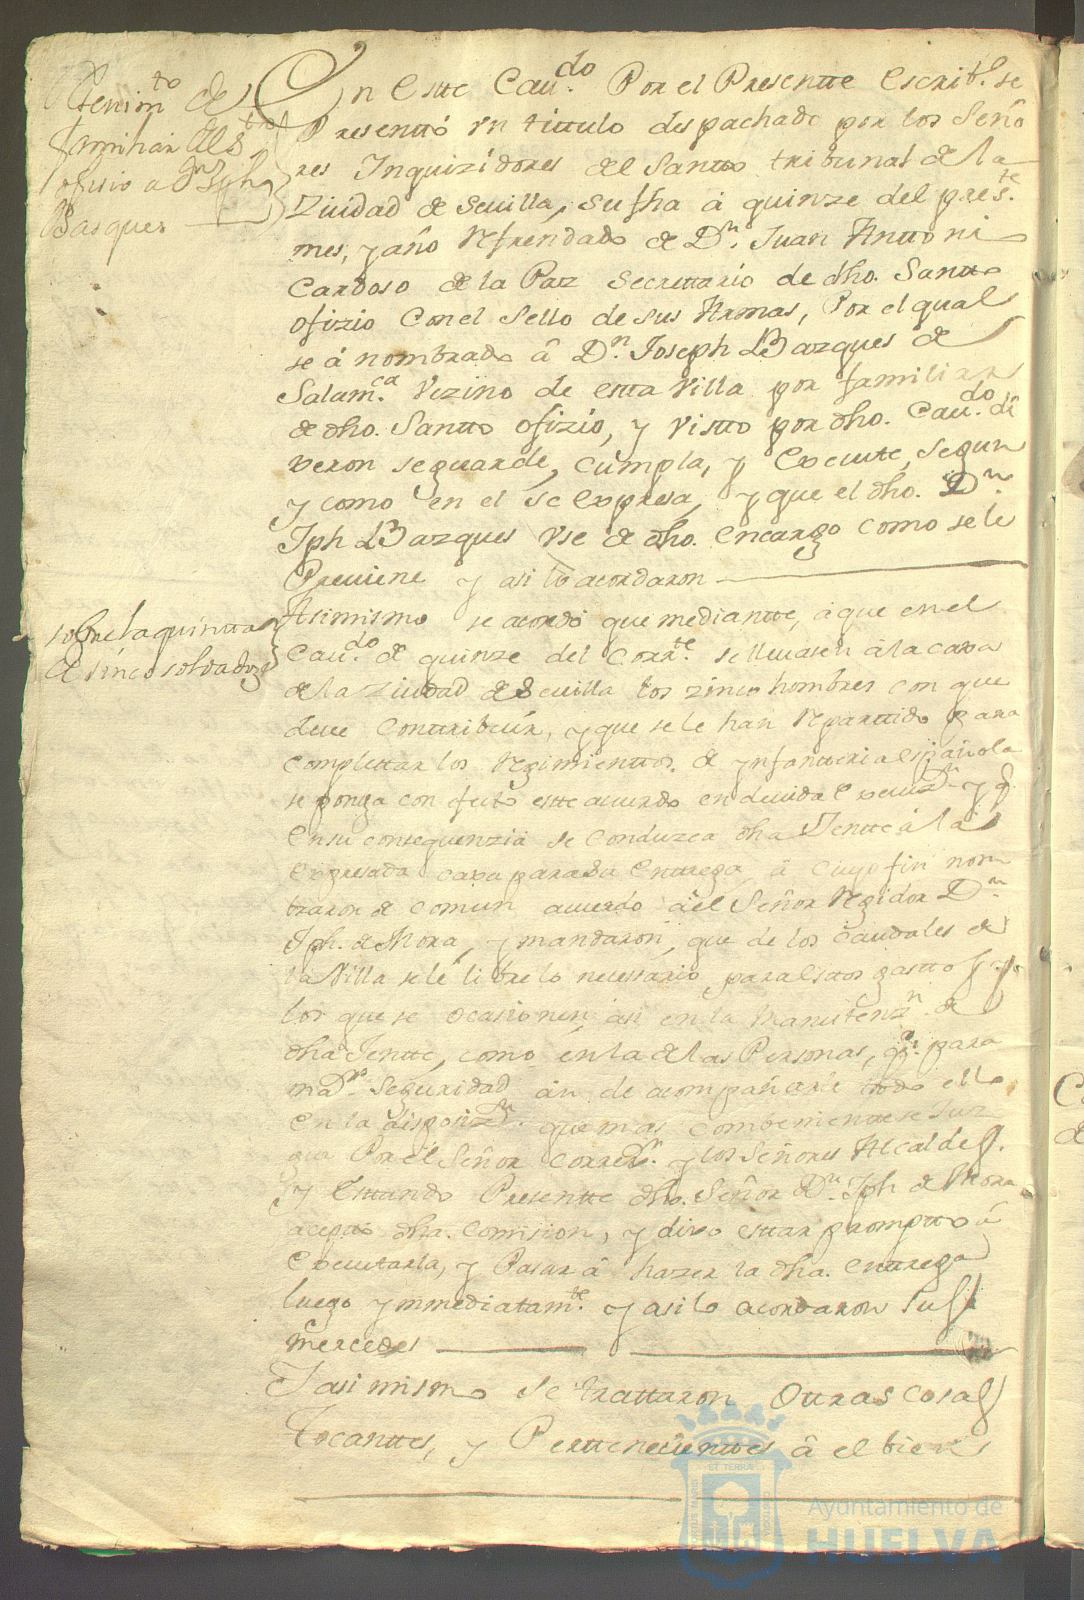 de
familiar del sto
ofisio a Dn Jph
Basques
En Estte Cavdo Por el Presentte Escribo se
Presenttó vn tittulo despachado por los Seño
res Inquizidores del Santto tribunal de la
Ziudad de Sevilla, su fha â quinze del preste
mes, y año Refrendado de Dn Juan Anttoni
Cardoso de la Paz Secrettario de dho. Santto
Ofizio Con el Sello de sus Armas, Por el qual
se â nombrado â Dn Joseph Bazques de
Salamca Vezino de Estta Villa por familiar
de dho. Santto Ofizio, y Vistto por dho. Caudo di
xeron se guarde, Cumpla, y Execute, segun
y como en el se Expresa, y que el dho. Dn
Jph Bazques Vse de dho. encargo como se le
Previene y asi lo acordaron
sobre la quintta
de sinco soldados
Asimismo se acordó que mediantte, â que en el
Caudo de quinze del Corrte se llevasen â la caxa
de la Ziudad de Sevilla los zinco hombres con que
deve Conttribuir, y que se le han Reparttido para
Complettar los Regimienttos de ynfantteria española
se ponga con efecto estte acuerdo en devida Execuzn y q
En su consequenzia se Conduzca dha Jentte â la
Expresada caxa para su Enttrega, â Cuyo fin nom
braron de comun acuerdo âel Señor Rexidor Dn
Jph. de Mora, y mandaron, que de los Caudales de
la Villa se le libre lo necessario, para esttos gasttos y
los que se ocasionen asi en la Manutenzn de
dha Jentte, como en la de las Personas, qe para
seguridad ân de acompañarle todo ello
En la disposizn que mas combenientte se Juz
gue Por el Señor Correxr y los Señores Alcaldes.
y Esttando Presentte dho. Señor Dn Jph de Mora
aceptó dha. Comision, y dixo esttar prompto â
Executtarla, y Pasar â hazer la dha. Enttrega
luego ymmediatamte y asi lo acordaron Sus
mercedes
Y asi mismo Se trattaron Ottras cosas
tocanttes, y Pertteneciénttes â el bien
ET TERRAE
Ayuntamiento de
HUELVA